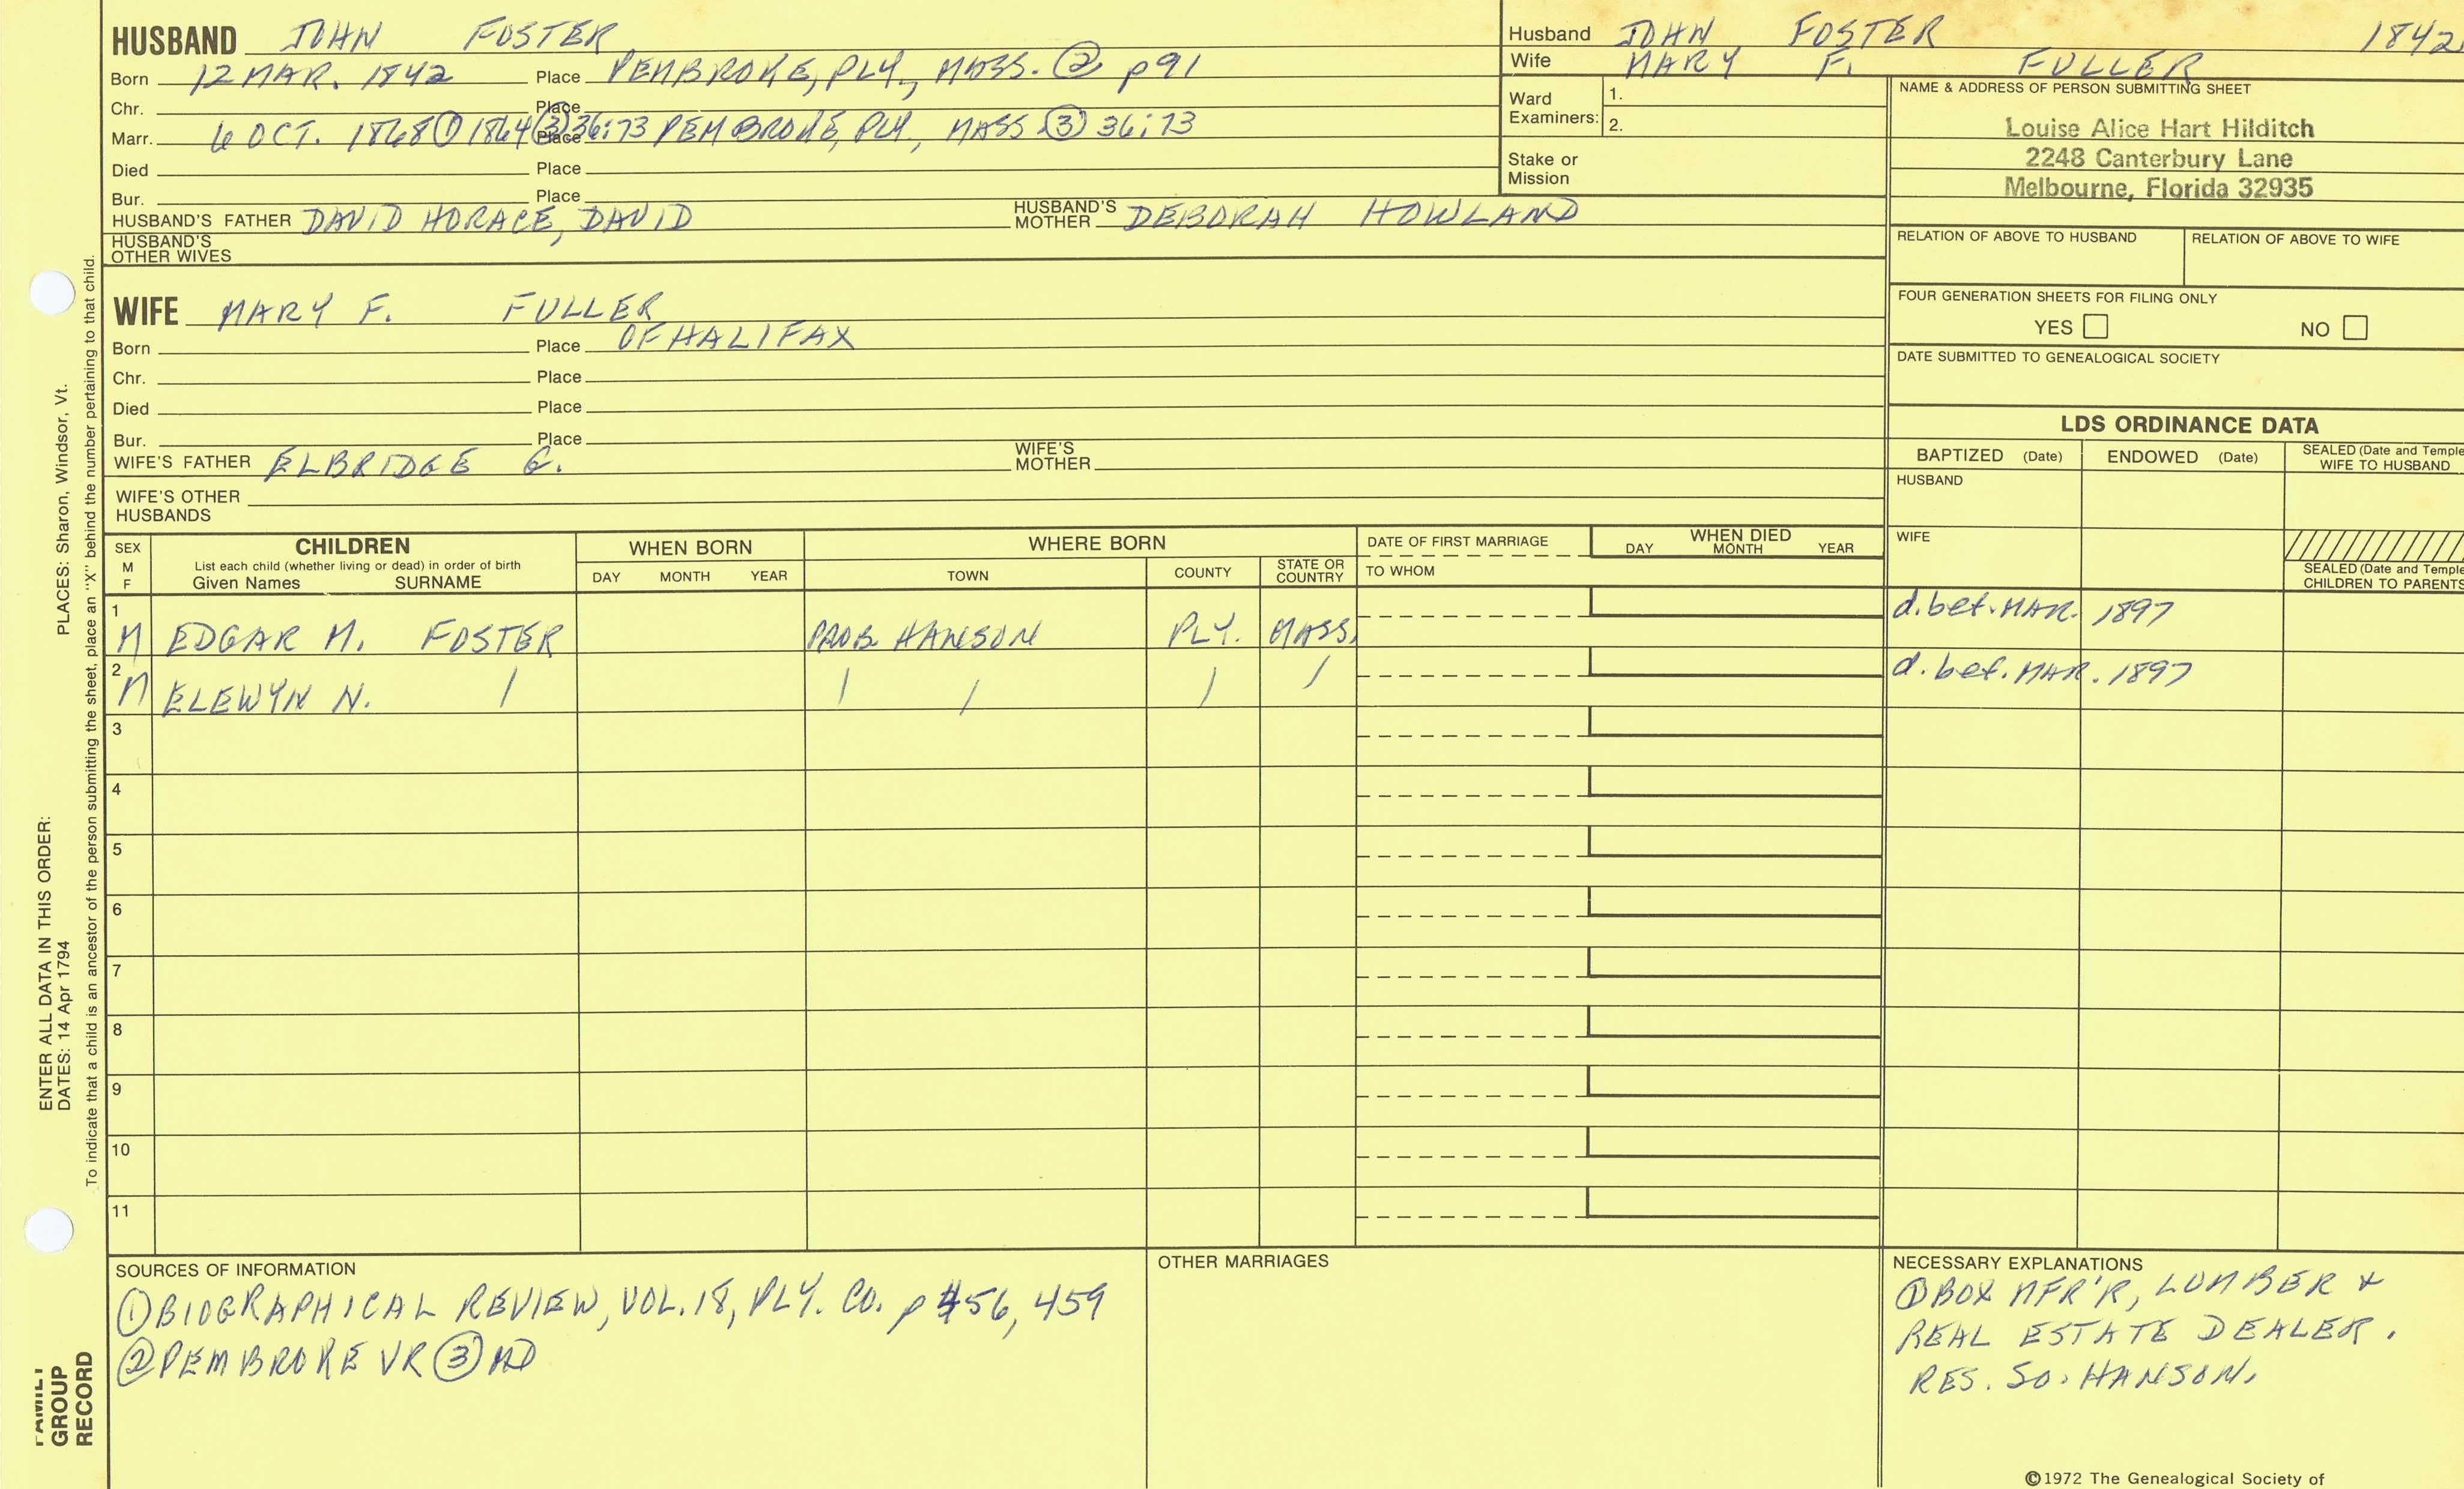 HUSBAND JOHN FOSTER
Born 12 MAR. 1842 Place PEMBROKE, PLY., MASS. ② p91
Chr. Place
Marr. 6 OCT. 1868 ① 1864 ③ 36:73 Place PEMBROKE, PLY., MASS ③ 36:73
Died Place
Bur. Place
HUSBAND'S FATHER DAVID HORACE, DAVID HUSBAND'S MOTHER DEBORAH HOWLAND
HUSBAND'S OTHER WIVES
WIFE MARY F. FULLER
Born Place OF HALIFAX
Chr. Place
Died Place
Bur. Place
WIFE'S FATHER ELBRIDGE G. WIFE'S MOTHER
WIFE'S OTHER HUSBANDS
Husband JOHN FOSTER 1842
Wife MARY F. FULLER
Ward Examiners: 1.
2.
Stake or Mission
NAME & ADDRESS OF PERSON SUBMITTING SHEET
Louise Alice Hart Hilditch
2248 Canterbury Lane
Melbourne, Florida 32935
RELATION OF ABOVE TO HUSBAND RELATION OF ABOVE TO WIFE
FOUR GENERATION SHEETS FOR FILING ONLY
YES NO
DATE SUBMITTED TO GENEALOGICAL SOCIETY
LDS ORDINANCE DATA
BAPTIZED (Date) ENDOWED (Date) SEALED (Date and Temple
WIFE TO HUSBAND
HUSBAND
WIFE
SEALED (Date and Temple
CHILDREN TO PARENTS
SEX M F CHILDREN WHEN BORN WHERE BORN DATE OF FIRST MARRIAGE WHEN DIED
List each child (whether living or dead) in order of birth
Given Names SURNAME DAY MONTH YEAR TOWN COUNTY STATE OR COUNTRY TO WHOM DAY MONTH YEAR
1 M EDGAR M. FOSTER PROB. HANSON PLY. MASS. d. bef. MAR. 1897
2 M ELEWYN N. / / / / / d. bef. MAR. 1897
3
4
5
6
7
8
9
10
11
SOURCES OF INFORMATION
① BIOGRAPHICAL REVIEW, VOL. 18, PLY. CO. p 456, 459
② PEMBROKE VR ③ MD
OTHER MARRIAGES
NECESSARY EXPLANATIONS
① BOX MFR'R, LUMBER +
REAL ESTATE DEALER.
RES. SO. HANSON.
©1972 The Genealogical Society of
ENTER ALL DATA IN THIS ORDER:
DATES: 14 Apr 1794 PLACES: Sharon, Windsor, Vt.
To indicate that a child is an ancestor of the person submitting the sheet, place an "X" behind the number pertaining to that child.
FAMILY
GROUP
RECORD